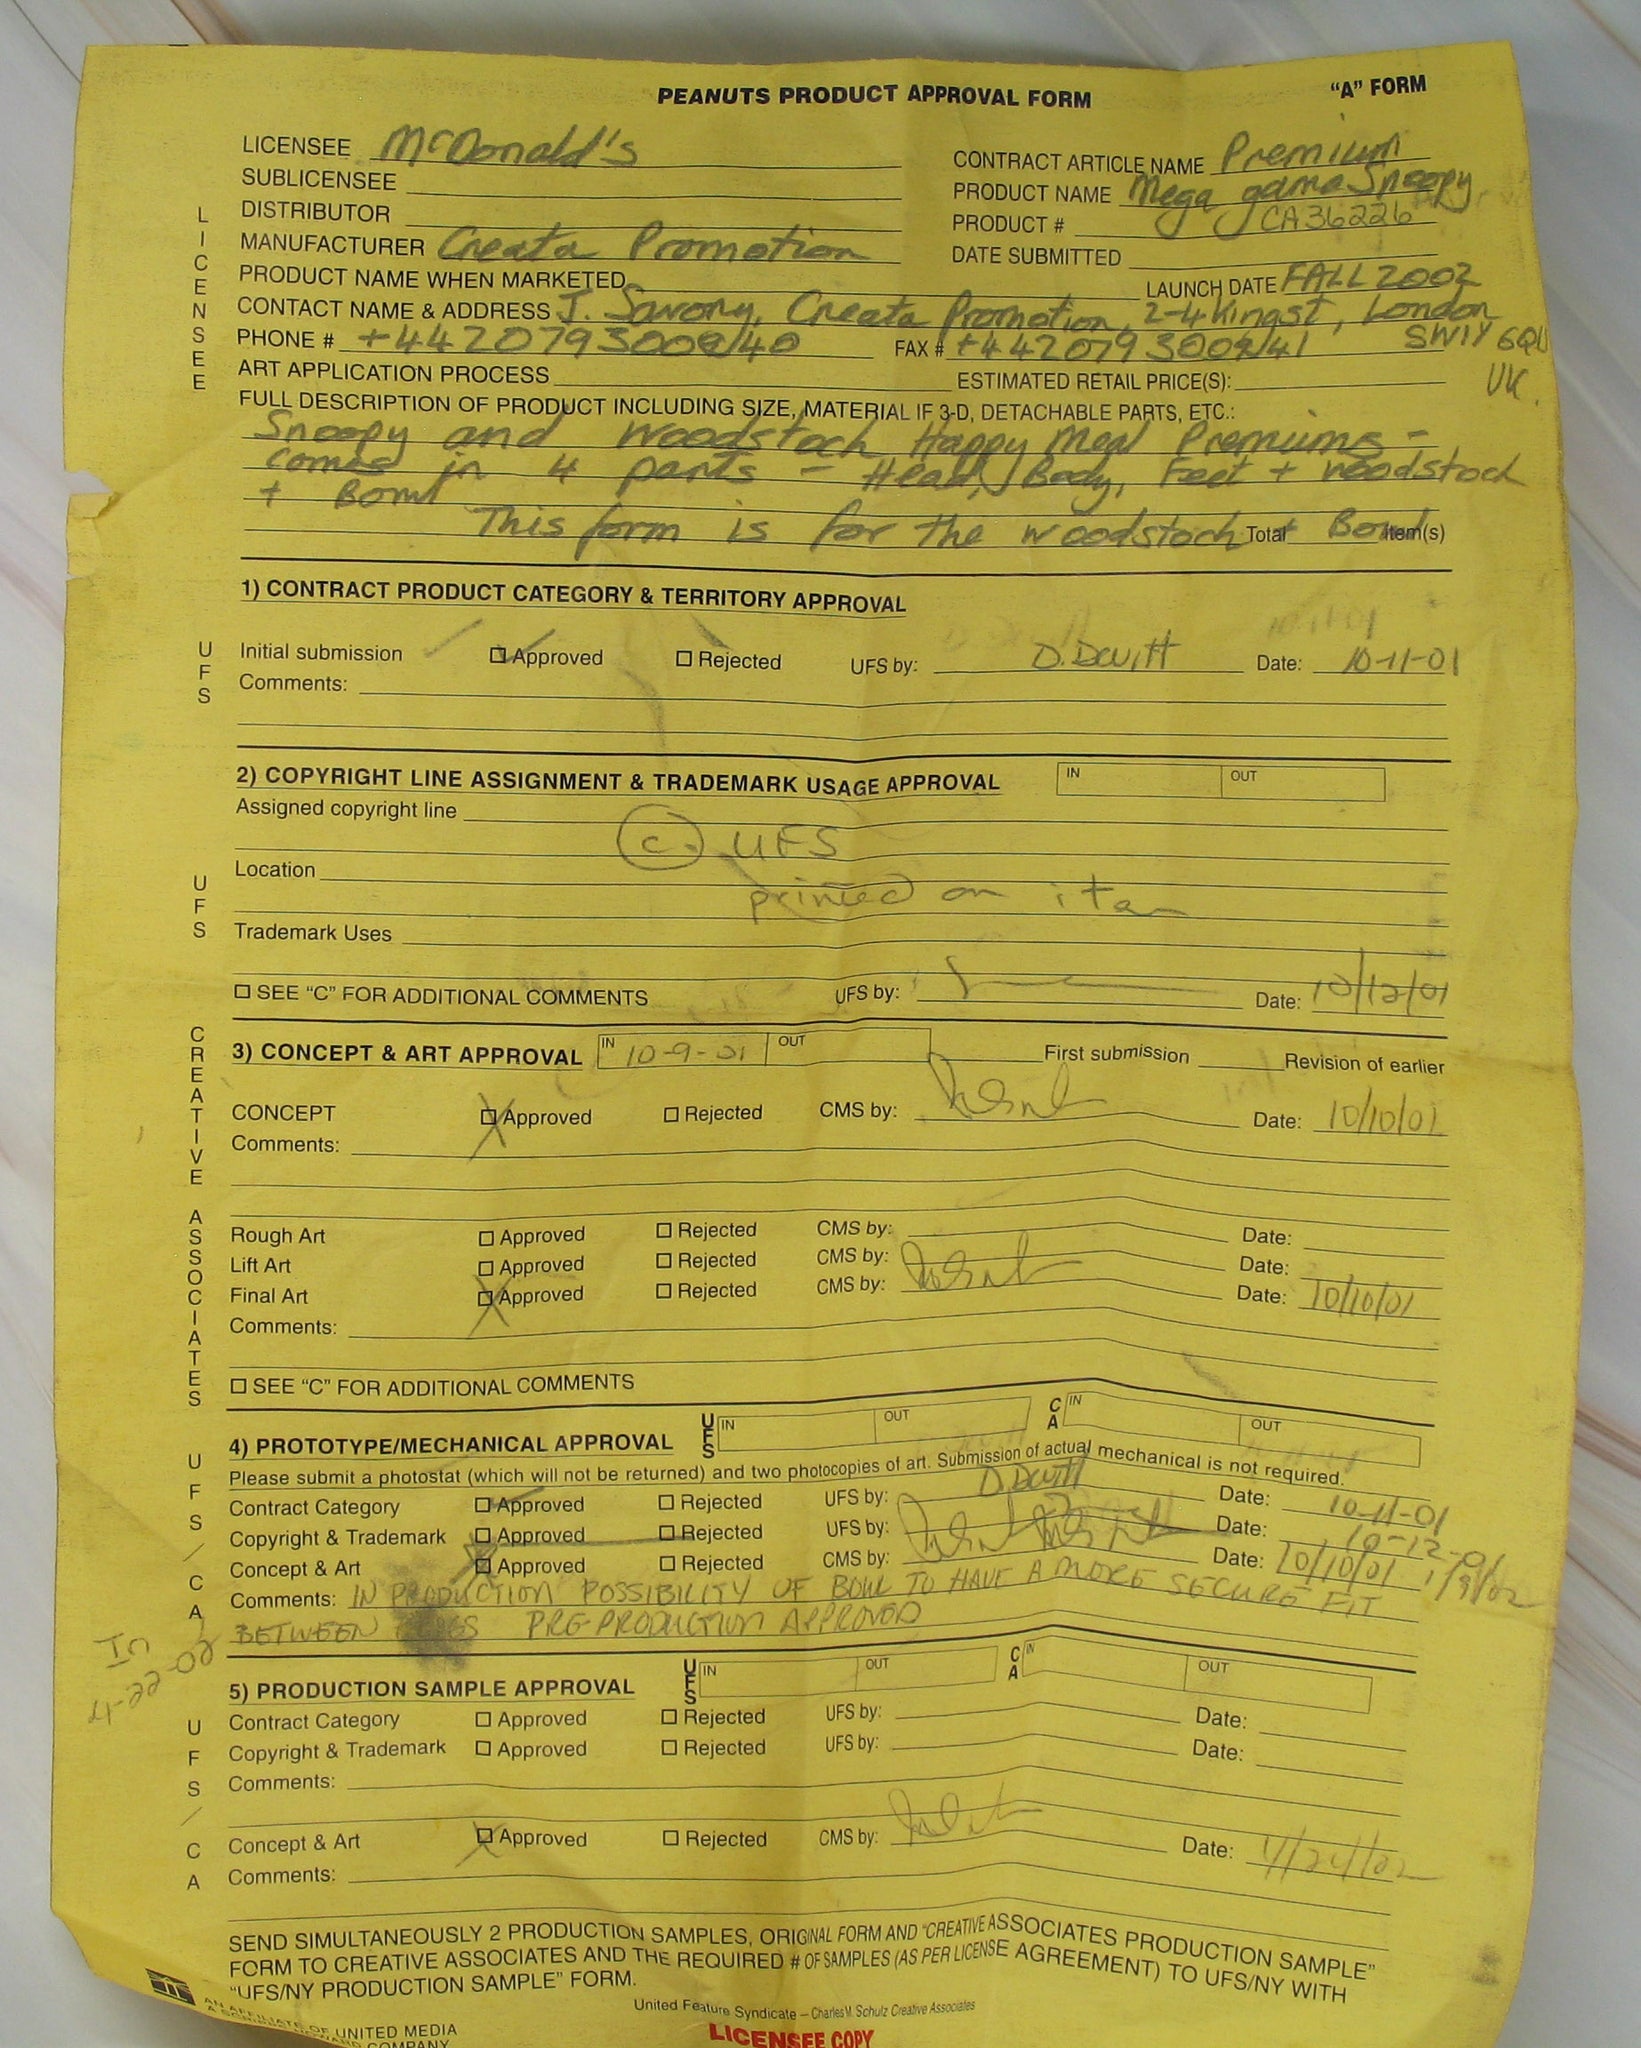 PEANUTS PRODUCT APPROVAL FORM "A" FORM
LICENSEE McDonald's CONTRACT ARTICLE NAME Premium
SUBLICENSEE PRODUCT NAME Mega game Snoopy
DISTRIBUTOR PRODUCT # CA36226
MANUFACTURER Creata Promotion DATE SUBMITTED
PRODUCT NAME WHEN MARKETED LAUNCH DATE FALL 2002
CONTACT NAME & ADDRESS J. Savory, Creata Promotion, 2-4 King st, London
PHONE # FAX # SW1Y 6QL
UK.
ART APPLICATION PROCESS ESTIMATED RETAIL PRICE(S):
LICENSEE
FULL DESCRIPTION OF PRODUCT INCLUDING SIZE, MATERIAL IF 3-D, DETACHABLE PARTS, ETC.:
Snoopy and Woodstock Happy Meal Premiums -
comes in 4 parts - Head, Body, Feet + Woodstock
+ Bowl
This form is for the Woodstock + Bowl Total Item(s)
1) CONTRACT PRODUCT CATEGORY & TERRITORY APPROVAL
UFS
Initial submission ☐ Approved ☐ Rejected UFS by: D. Devitt Date: 10-11-01
Comments:
2) COPYRIGHT LINE ASSIGNMENT & TRADEMARK USAGE APPROVAL IN OUT
Assigned copyright line
© UFS
Location
printed on item
UFS
Trademark Uses
☐ SEE "C" FOR ADDITIONAL COMMENTS UFS by: Date: 10/12/01
CREATIVE ASSOCIATES
3) CONCEPT & ART APPROVAL IN 10-9-01 OUT First submission Revision of earlier
CONCEPT ☐ Approved ☐ Rejected CMS by: Date: 10/10/01
Comments:
Rough Art ☐ Approved ☐ Rejected CMS by: Date:
Lift Art ☐ Approved ☐ Rejected CMS by: Date:
Final Art ☐ Approved ☐ Rejected CMS by: Date: 10/10/01
Comments:
☐ SEE "C" FOR ADDITIONAL COMMENTS
4) PROTOTYPE/MECHANICAL APPROVAL UFS IN OUT CA IN OUT
Please submit a photostat (which will not be returned) and two photocopies of art. Submission of actual mechanical is not required.
UFS/CA
Contract Category ☐ Approved ☐ Rejected UFS by: D. Devitt Date: 10-11-01
Copyright & Trademark ☐ Approved ☐ Rejected UFS by: Date: 10-12-01
Concept & Art ☐ Approved ☐ Rejected CMS by: Date: 10/10/01 1/9/02
Comments: IN PRODUCTION POSSIBILITY OF BOWL TO HAVE A MORE SECURE FIT
BETWEEN PRE-PRODUCTION APPROVED
In
4-22-02
5) PRODUCTION SAMPLE APPROVAL UFS IN OUT CA IN OUT
UFS/CA
Contract Category ☐ Approved ☐ Rejected UFS by: Date:
Copyright & Trademark ☐ Approved ☐ Rejected UFS by: Date:
Comments:
Concept & Art ☐ Approved ☐ Rejected CMS by: Date:
Comments:
SEND SIMULTANEOUSLY 2 PRODUCTION SAMPLES, ORIGINAL FORM AND "CREATIVE ASSOCIATES PRODUCTION SAMPLE"
FORM TO CREATIVE ASSOCIATES AND THE REQUIRED # OF SAMPLES (AS PER LICENSE AGREEMENT) TO UFS/NY WITH
"UFS/NY PRODUCTION SAMPLE" FORM.
United Feature Syndicate – Charles M. Schulz Creative Associates
AN AFFILIATE OF UNITED MEDIA
COMPANY
LICENSEE COPY